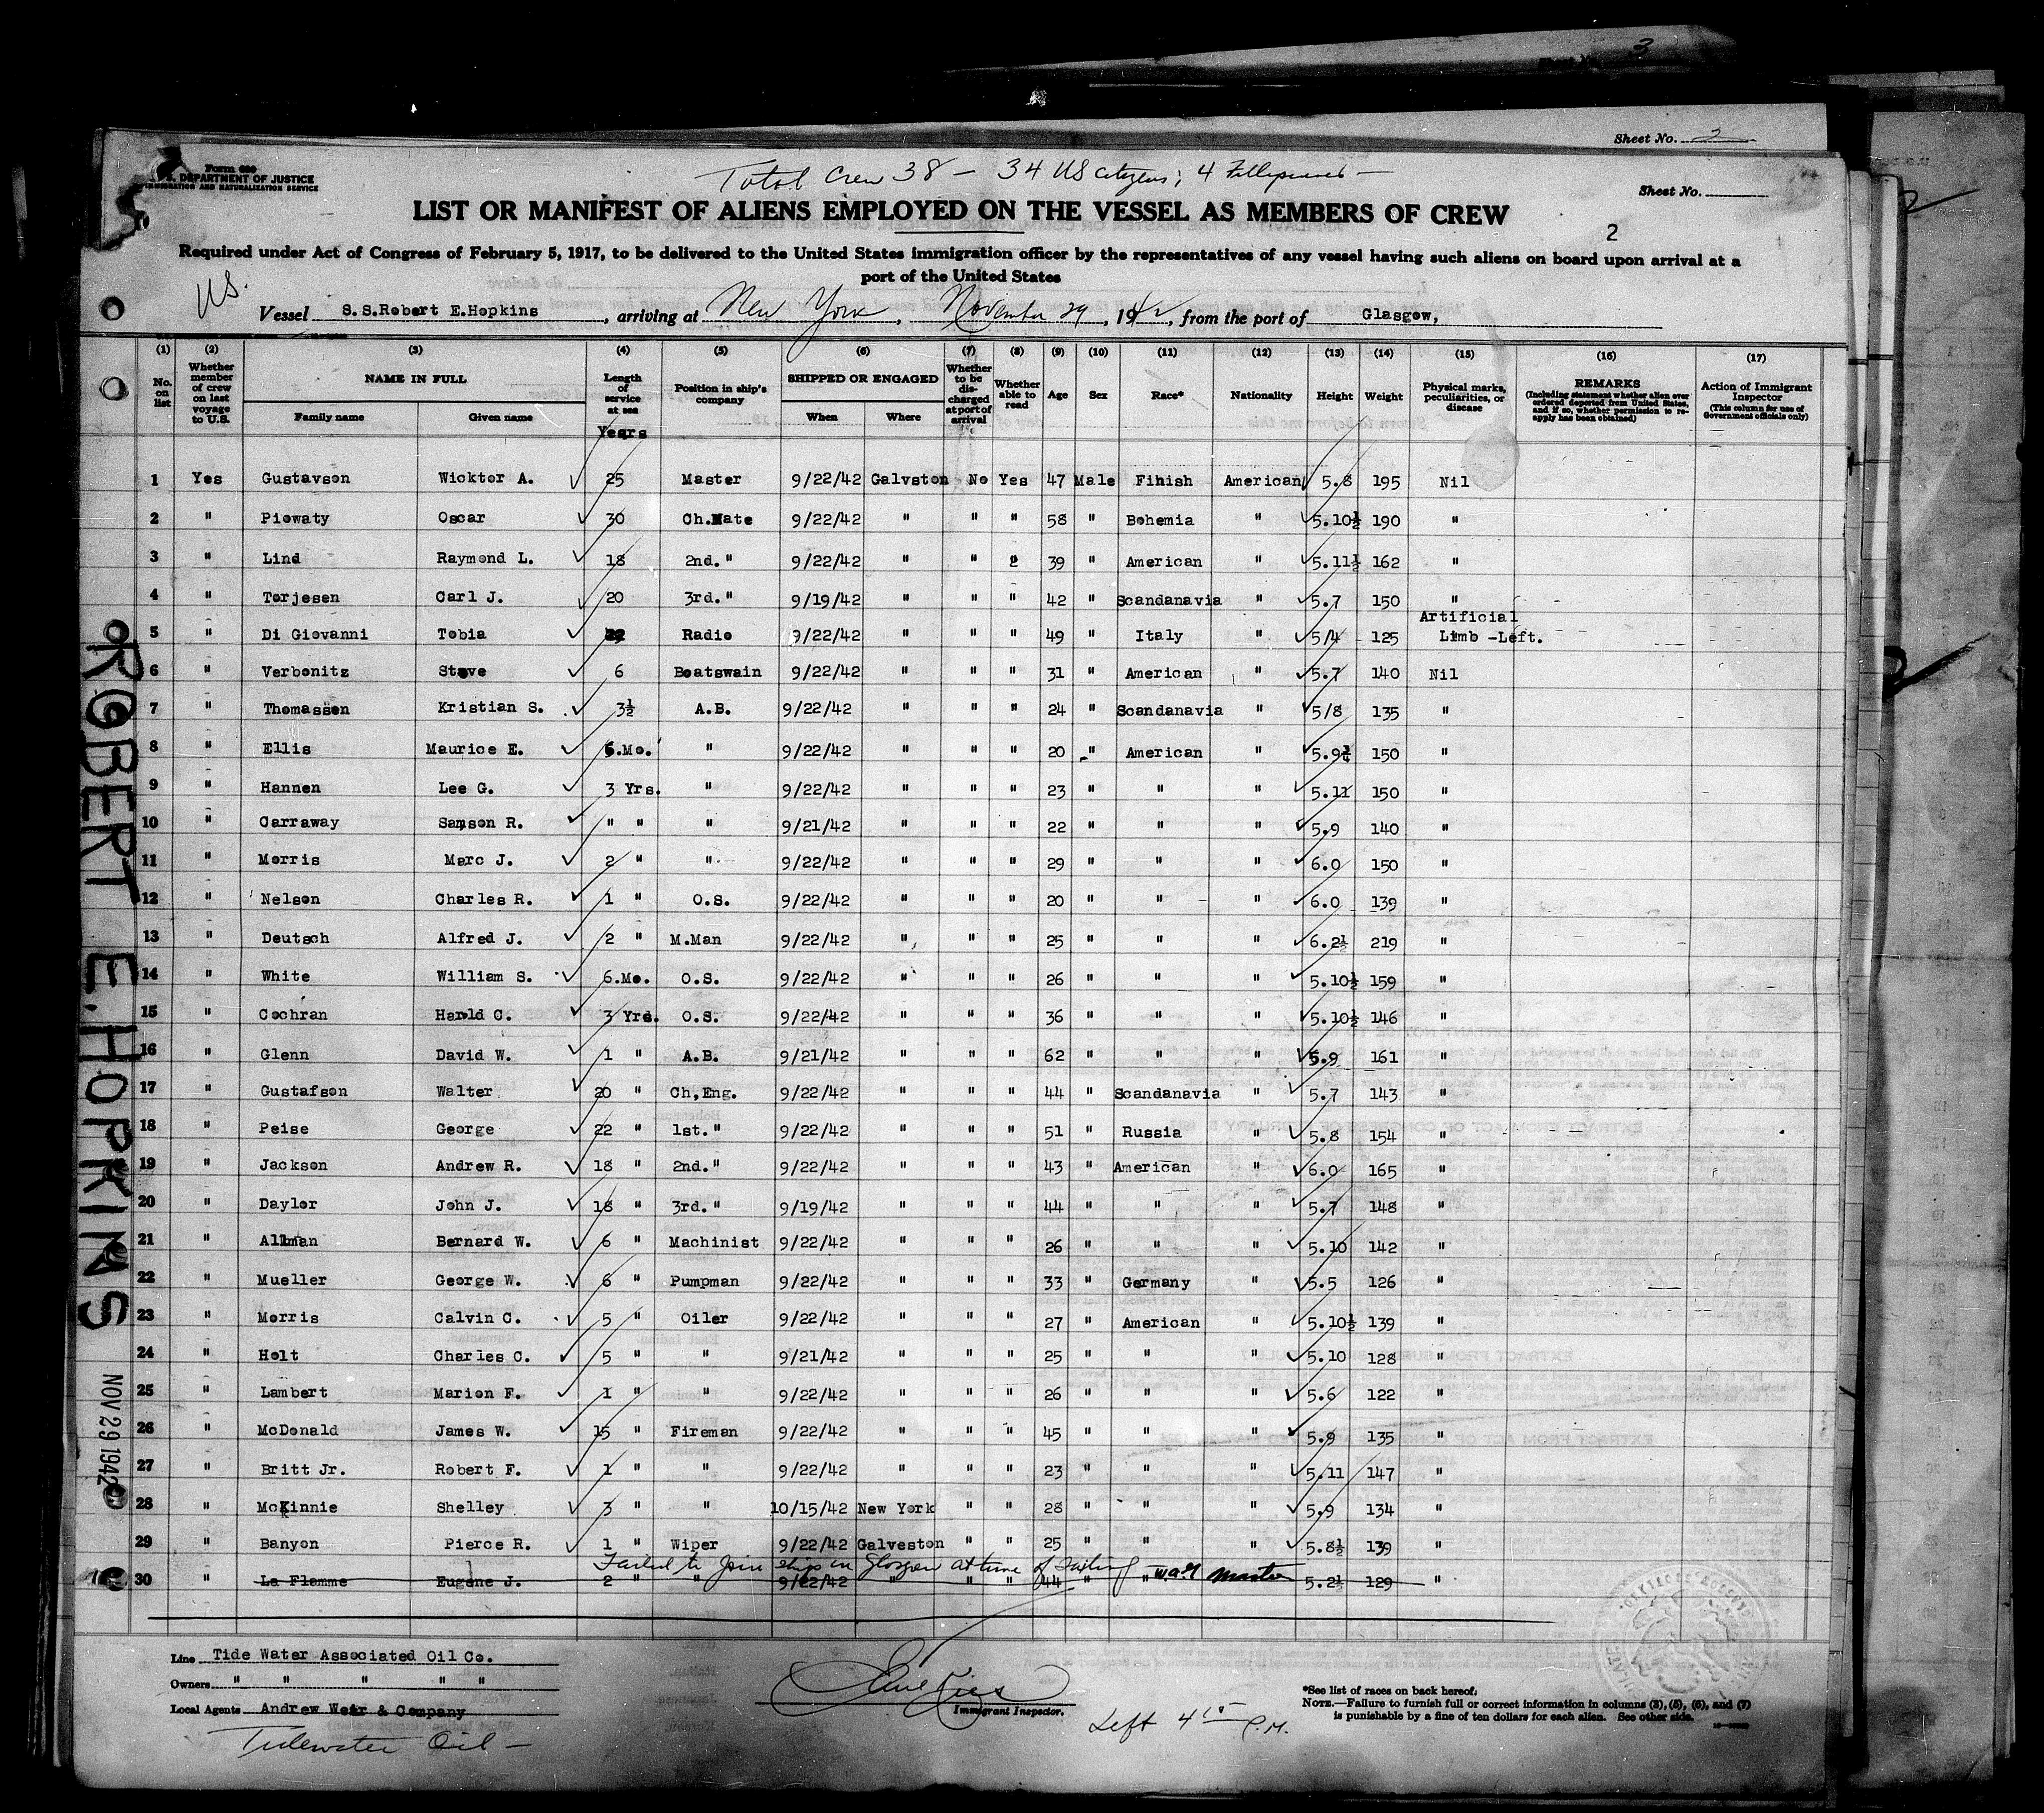 3
Sheet No. 3
Sheet No.
Form 680
U. S. DEPARTMENT OF JUSTICE
IMMIGRATION AND NATURALIZATION SERVICE
Total Crew 38 — 34 US Citizens; 4 Fillipinos —
LIST OR MANIFEST OF ALIENS EMPLOYED ON THE VESSEL AS MEMBERS OF CREW
2
Required under Act of Congress of February 5, 1917, to be delivered to the United States immigration officer by the representatives of any vessel having such aliens on board upon arrival at a
port of the United States
U.S.
Vessel S.S.Robert E.Hopkins, arriving at New York, November 29, 1942, from the port of Glasgow,
(1) (2) (3) (4) (5) (6) (7) (8) (9) (10) (11) (12) (13) (14) (15) (16) (17)
No. on list
Whether member of crew on last voyage to U.S.
NAME IN FULL
Family name Given name
Length of service at sea
Years
Position in ship's company
SHIPPED OR ENGAGED
When Where
Whether to be discharged at port of arrival
Whether able to read
Age
Sex
Race*
Nationality
Height
Weight
Physical marks, peculiarities, or disease
REMARKS
(Including statement whether alien ever ordered deported from United States, and if so, whether permission to reapply has been obtained)
Action of Immigrant Inspector
(This column for use of Government officials only)
1 Yes Gustavson Wicktor A. 25 Master 9/22/42 Galvston No Yes 47 Male Finish American 5.8 195 Nil
2 " Piowaty Oscar 30 Ch.Mate 9/22/42 " " " 58 " Bohemia " 5.10½ 190 "
3 " Lind Raymond L. 18 2nd. " 9/22/42 " " " 39 " American " 5.11½ 162 "
4 " Torjesen Carl J. 20 3rd. " 9/19/42 " " " 42 " Scandanavia " 5.7 150 "
5 " Di Giovanni Tobia Radio 9/22/42 " " " 49 " Italy " 5/4 125 Artificial Limb -Left.
6 " Verbonitz Steve 6 Boatswain 9/22/42 " " " 31 " American " 5.7 140 Nil
7 " Thomassen Kristian S. 3½ A.B. 9/22/42 " " " 24 " Scandanavia " 5/8 135 "
8 " Ellis Maurice E. 6.Mo. " 9/22/42 " " " 20 " American " 5.9¼ 150 "
9 " Hannen Lee G. 3 Yrs. " 9/22/42 " " " 23 " " " 5.11 150 "
10 " Carraway Samson R. " " " 9/21/42 " " " 22 " " " 5.9 140 "
11 " Morris Marc J. 2 " " 9/22/42 " " " 29 " " " 6.0 150 "
12 " Nelson Charles R. 1 " O.S. 9/22/42 " " " 20 " " " 6.0 139 "
13 " Deutsch Alfred J. 2 " M.Man 9/22/42 " " " 25 " " " 6.2½ 219 "
14 " White William S. 6.Mo. O.S. 9/22/42 " " " 26 " " " 5.10½ 159 "
15 " Cochran Harold C. 3 Yrs. O.S. 9/22/42 " " " 36 " " " 5.10½ 146 "
16 " Glenn David W. 1 " A.B. 9/21/42 " " " 62 " " " 5.9 161 "
17 " Gustafson Walter 20 " Ch,Eng. 9/22/42 " " " 44 " Scandanavia " 5.7 143 "
18 " Peise George 22 " 1st. " 9/22/42 " " " 51 " Russia " 5.8 154 "
19 " Jackson Andrew R. 18 " 2nd. " 9/22/42 " " " 43 " American " 6.0 165 "
20 " Daylor John J. 18 " 3rd. " 9/19/42 " " " 44 " " " 5.7 148 "
21 " Allman Bernard W. 6 " Machinist 9/22/42 " " " 26 " " " 5.10 142 "
22 " Mueller George W. 6 " Pumpman 9/22/42 " " " 33 " Germany " 5.5 126 "
23 " Morris Calvin C. 5 " Oiler 9/22/42 " " " 27 " American " 5.10½ 139 "
24 " Holt Charles C. 5 " " 9/21/42 " " " 25 " " " 5.10 128 "
25 " Lambert Marion F. 1 " " 9/22/42 " " " 26 " " " 5.6 122 "
26 " McDonald James W. 15 " Fireman 9/22/42 " " " 45 " " " 5.9 135 "
27 " Britt Jr. Robert F. 1 " " 9/22/42 " " " 23 " " " 5.11 147 "
28 " McKinnie Shelley 3 " " 10/15/42 New York " " 28 " " " 5.9 134 "
29 " Banyon Pierce R. 1 " Wiper 9/22/42 Galveston " " 25 " " " 5.8½ 139 "
Failed to join ship in Glasgow at time of sailing WAG Master
30 " La Flamme Eugene J. 2 " " 9/22/42 " " " 44 " " 5.2½ 129 "
ROBERT E. HOPKINS
NOV 29 1942
Line Tide Water Associated Oil Co.
Owners " " " " "
Local Agents Andrew Weir & Company
Tidewater Oil —
Immigrant Inspector.
Left 4 15 P.M.
*See list of races on back hereof.
NOTE.—Failure to furnish full or correct information in columns (3), (5), (6), and (7)
is punishable by a fine of ten dollars for each alien. See other side.